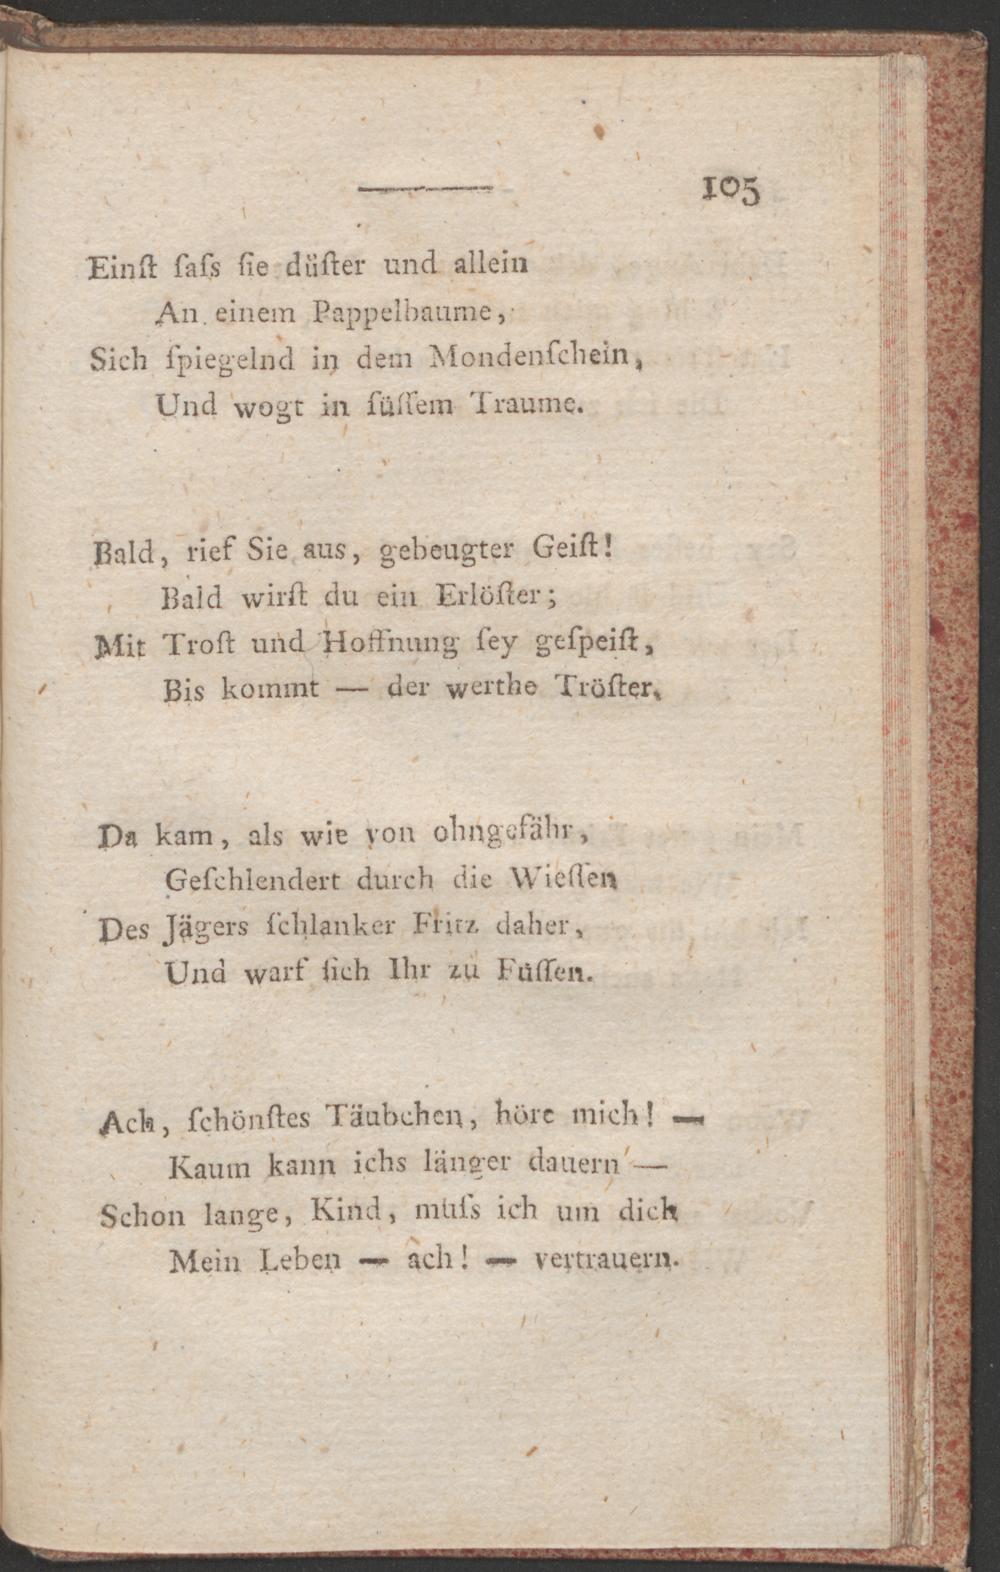 105
Einſt ſaſs ſie düſter und allein
An einem Pappelbaume,
Sich ſpiegelnd in dem Mondenſchein,
Und wogt in ſüſſem Traume.
Bald, rief Sie aus, gebeugter Geiſt!
Bald wirſt du ein Erlöſter;
Mit Troſt und Hoffnung ſey geſpeiſt,
Bis kommt — der werthe Tröſter.
Da kam, als wie von ohngefähr,
Geſchlendert durch die Wieſſen
Des Jägers ſchlanker Fritz daher,
Und warf ſich Ihr zu Füſſen.
Ach, ſchönſtes Täubchen, höre mich! —
Kaum kann ichs länger dauern —
Schon lange, Kind, muſs ich um dich
Mein Leben — ach! — vertrauern.